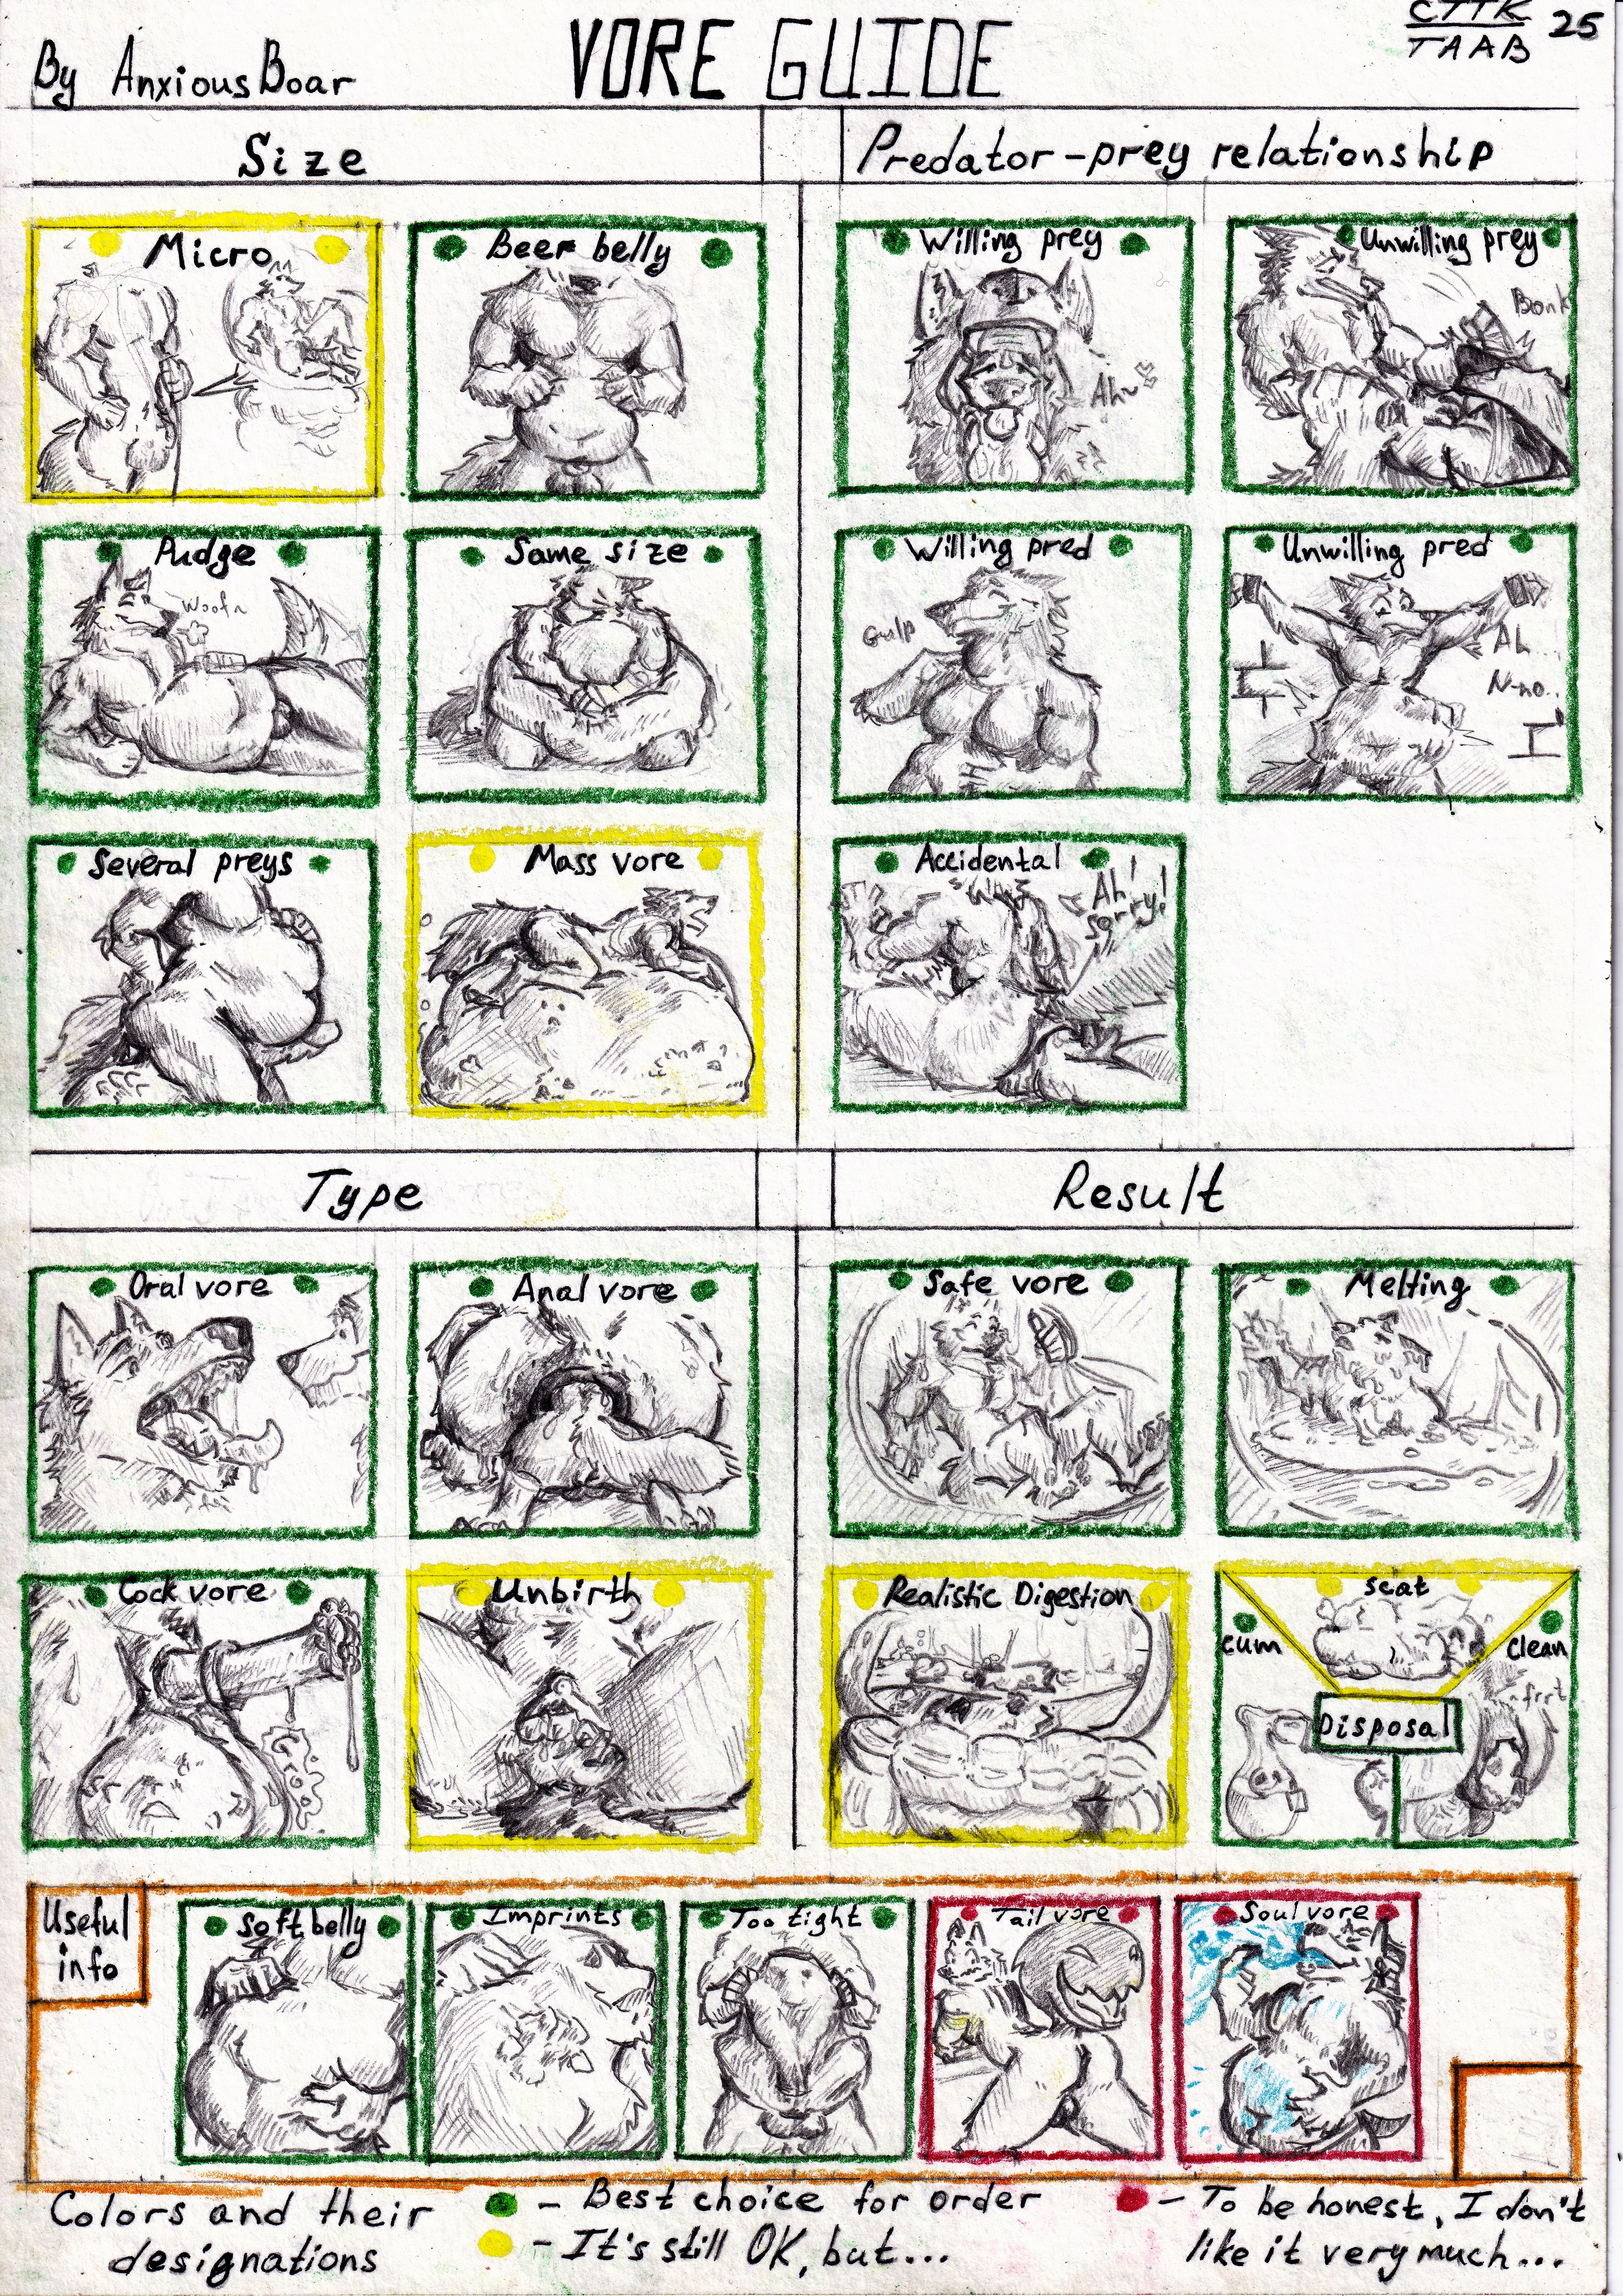 By AnxiousBoar
VORE GUIDE
CTTK
TAAB
25
Size
Predator-prey relationship
Micro
Beer belly
Willing prey
Ah~
Unwilling prey
Bonk
Pudge
Woof~
Same size
Willing pred
Gulp
Unwilling pred
Ah
N-no..
Several preys
Mass vore
Accidental
Ah!
sorry!
Type
Result
Oral vore
Anal vore
Safe vore
Melting
Cock vore
Unbirth
Realistic Digestion
scat
cum
clean
frrt
Disposal
Useful
info
Soft belly
Imprints
Too tight
Tail vore
Soul vore
Colors and their
designations
- Best choice for order
- It's still OK, but...
- To be honest, I don't
like it very much...